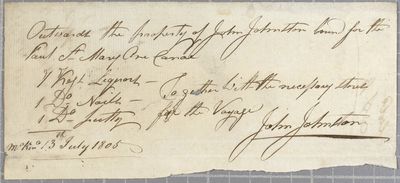 Outwards the property of John Johnston bound for the
Saut St Mary One Canoe
9 Kegs Liquors — Together with the necessary stores
1 Do Nails — for the Voyage
1 Do putty
John Johnston
13 July 1805